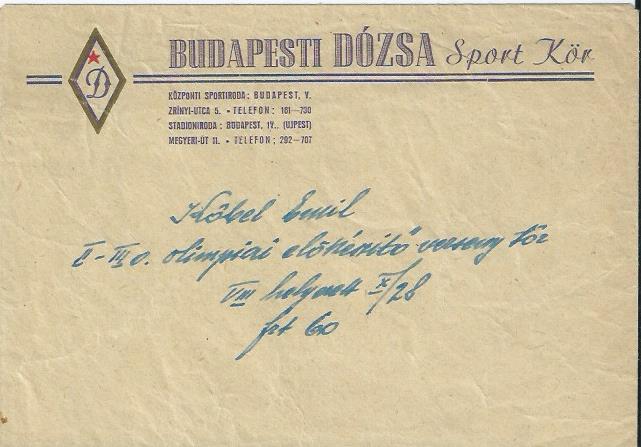 D
BUDAPESTI DÓZSA Sport Kör
KÖZPONTI SPORTIRODA: BUDAPEST, V.
ZRÍNYI-UTCA 5. • TELEFON: 181—730
STADIONIRODA: BUDAPEST, IV.. (UJPEST)
MEGYERI-ÚT 11. • TELEFON: 292—707
Kőbel Emil
II-III o. olimpiai előkészítő verseny tőr
VIII helyezett X/28
frt 60